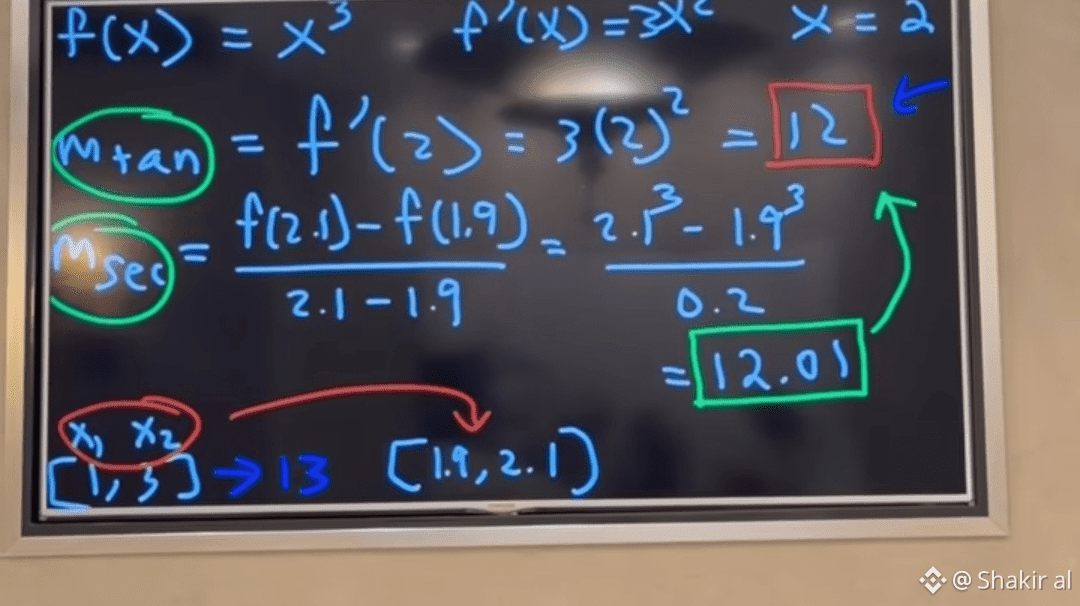 f(x) = x³ f'(x) = 3x² x = 2
mtan = f'(2) = 3(2)² = 12
msec = f(2.1) - f(1.9) / 2.1 - 1.9 = 2.1³ - 1.9³ / 0.2
= 12.01
x₁ x₂
[1, 3] → 13 [1.9, 2.1]
@ Shakir al